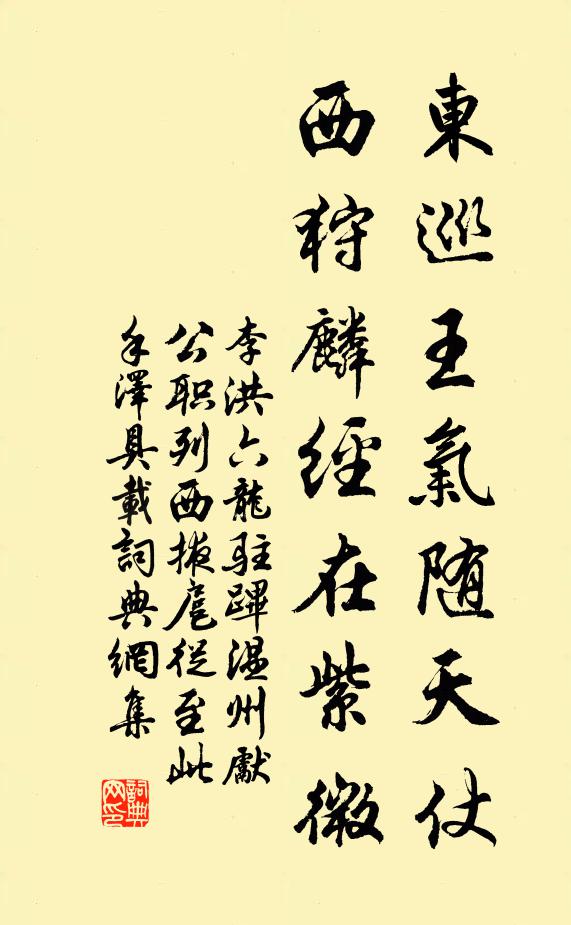 東巡王氣随天仗
西狩麟經在紫微
李洪六龍駐蹕温州獻
公职列西掖扈從至此
手澤具載詞典網集
詞典網印